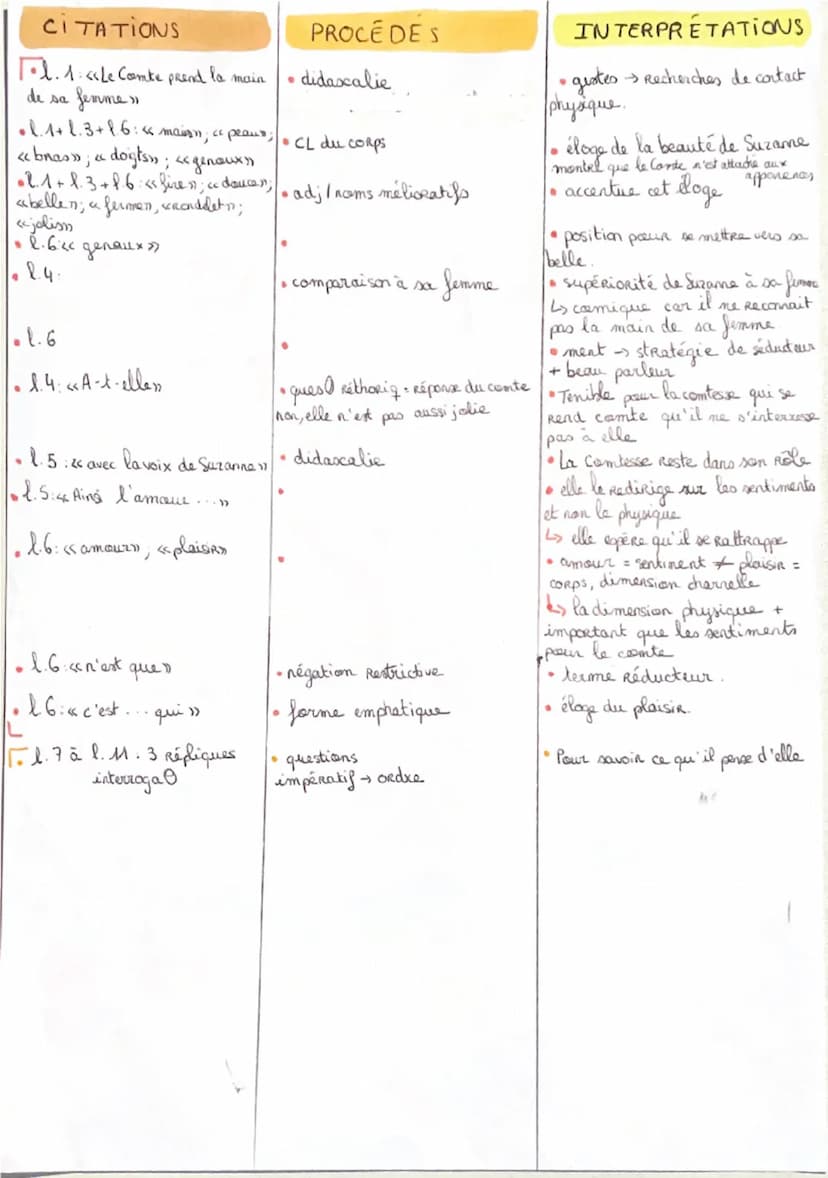 CITATIONS
PROCÉDÉS
INTERPRÉTATIONS
• l. 1 : «Le Comte prend la main
de sa femme»
• didascalie
• gestes → Recherches de contact
physique.
• l.1 + l.3 + l.6 : « main»; « peau»;
«bras»; « doigts»; «genoux»
• CL du corps
• éloge de la beauté de Suzanne
montre que le Comte n'est attaché aux
apparences
• l.1 + l.3 + l.6 : «fine»; «douce»;
«belle»; « ferme», «rondelet»;
«jolis»
• adj/noms mélioratifs
• accentue cet éloge
• l.6 «< genoux»
•
• position pour se mettre vers sa
belle.
• l.4.
• comparaison à sa femme
• supériorité de Suzanne à sa femme
↳ comique car il ne reconnait
pas la main de sa femme.
• l.6
•
• ment → stratégie de séducteur
+ beau parleur
• l.4: «A-t-elle»
• ques() réthoriq = réponse du comte
non, elle n'est pas aussi jolie
• Terrible pour la comtesse qui se
rend comte qu'il ne s'interresse
pas à elle
• l.5 : « avec la voix de Suzanne»
• didascalie
• La Comtesse reste dans son rôle
• l.5: « Ainsi l'amour ...»
•
• elle le redirige sur les sentiments
et non le physique
↳ elle espère qu'il se rattrappe
• l.6: «amour», «plaisir»
•
• amour = sentiment ≠ plaisir =
corps, dimension charnelle
↳ la dimension physique +
important que les sentiments
pour le comte
• l.6: «n'est que»
• négation restrictive
• terme réducteur.
• l6: « c'est ... qui »
• forme emphatique
• éloge du plaisir.
• l.7 à l.11. 3 répliques
interrogaθ
• questions
impératif → ordre
• Pour savoir ce qu'il pense d'elle